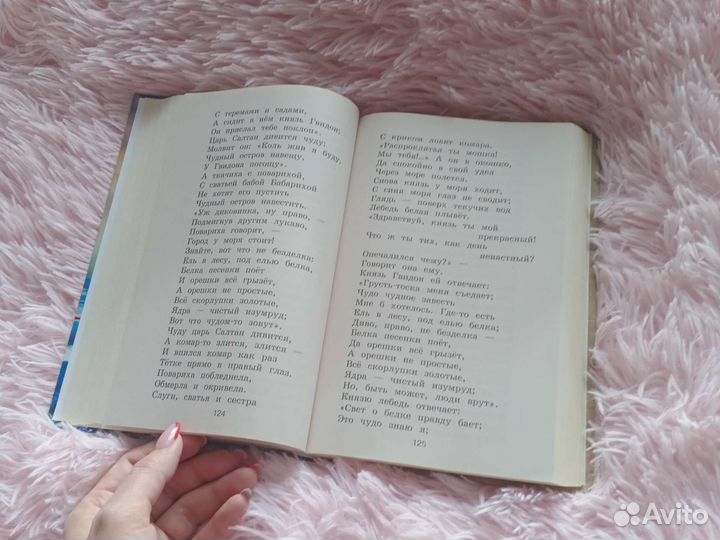 С теремами и садами,
А сидит в нём князь Гвидон;
Он прислал тебе поклон».
Царь Салтан дивится чуду;
Молвит он: «Коль жив я буду,
Чудный остров навещу,
У Гвидона погощу».
А ткачиха с поварихой,
С сватьей бабой Бабарихой
Не хотят его пустить
Чудный остров навестить.
«Уж диковинка, ну право, —
Подмигнув другим лукаво,
Повариха говорит, —
Город у моря стоит!
Знайте, вот что не безделка:
Ель в лесу, под елью белка,
Белка песенки поёт
И орешки всё грызёт,
А орешки не простые,
Всё скорлупки золотые,
Ядра — чистый изумруд;
Вот что чудом-то зовут».
Чуду царь Салтан дивится,
А комар-то злится, злится —
И впился комар как раз
Тётке прямо в правый глаз.
Повариха побледнела,
Обмерла и окривела.
Слуги, сватья и сестра
124
С криком ловят комара.
«Распроклятая ты мошка!
Мы тебя!..» А он в окошко,
Да спокойно в свой удел
Через море полетел.
Снова князь у моря ходит,
С синя моря глаз не сводит;
Глядь — поверх текучих вод
Лебедь белая плывёт.
«Здравствуй, князь ты мой
прекрасный!
Что ж ты тих, как день
ненастный?
Опечалился чему?» —
Говорит она ему.
Князь Гвидон ей отвечает:
«Грусть-тоска меня съедает;
Чудо чудное завесть
Мне б хотелось. Где-то есть
Ель в лесу, под елью белка;
Диво, право, не безделка —
Белка песенки поёт
Да орешки всё грызёт,
А орешки не простые,
Всё скорлупки золотые,
Ядра — чистый изумруд;
Но, быть может, люди врут».
Князю лебедь отвечает:
«Свет о белке правду бает;
Это чудо знаю я;
125
Avito